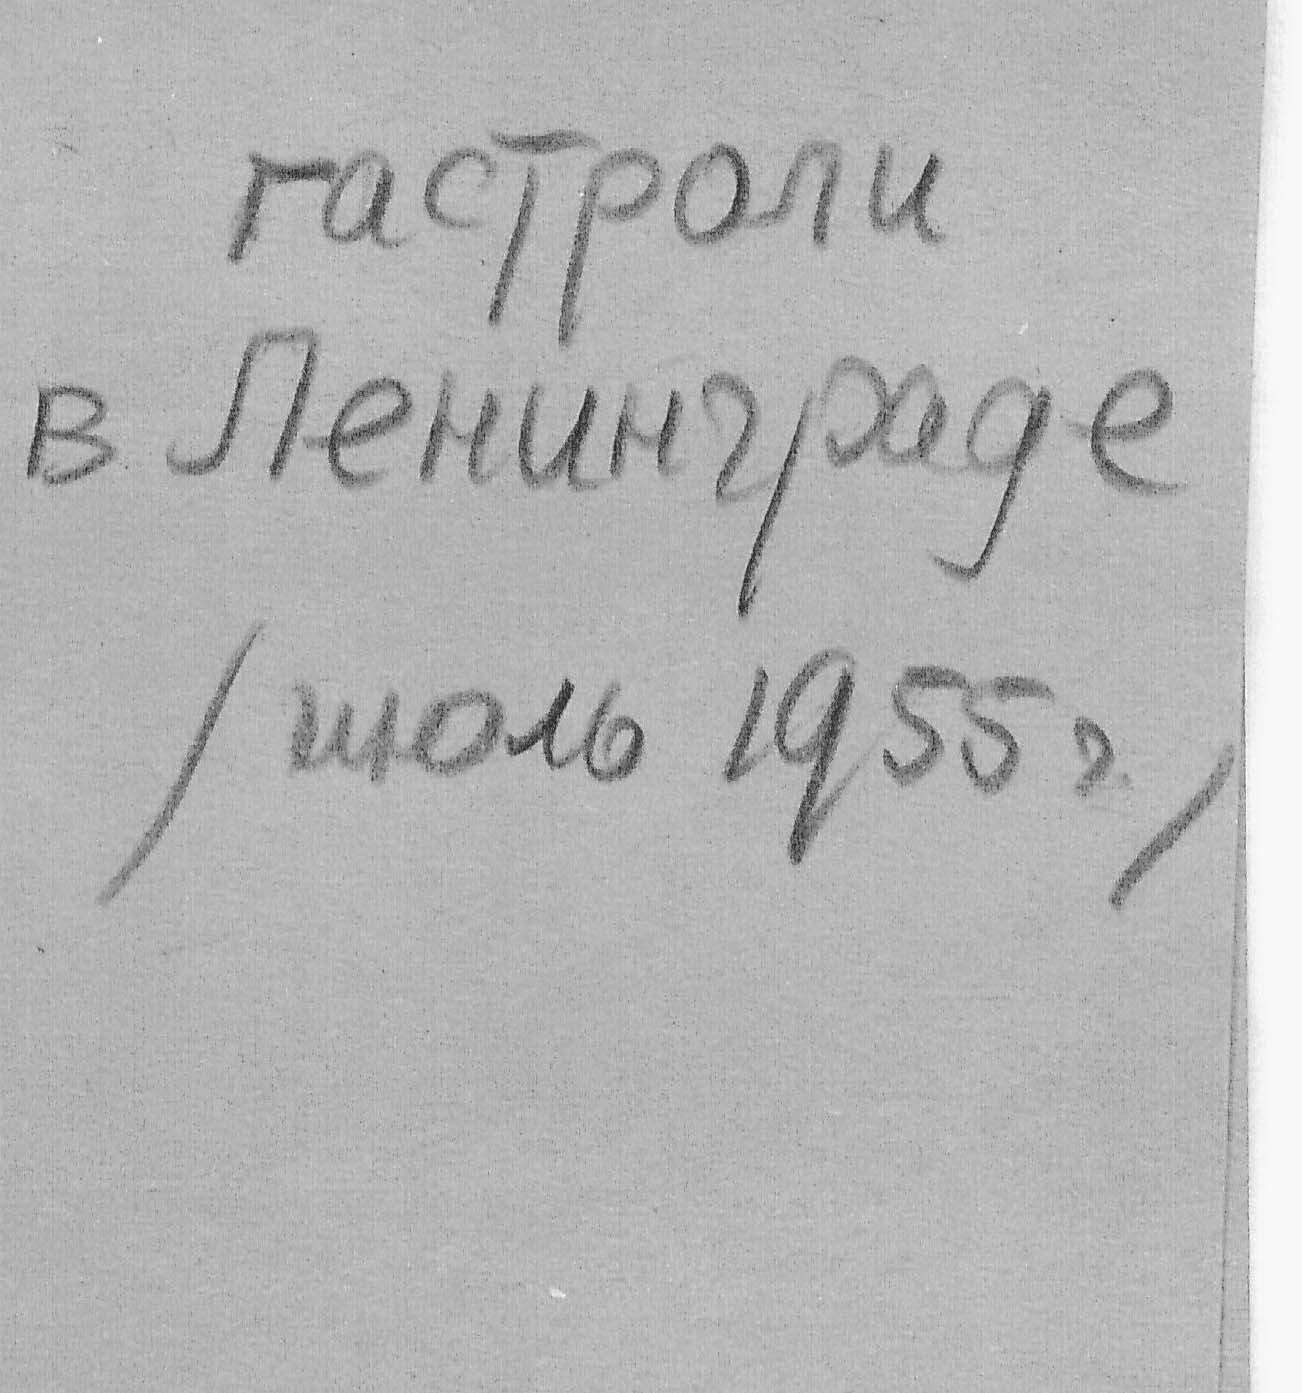 гастроли
в Ленинграде
/июль 1955 г./